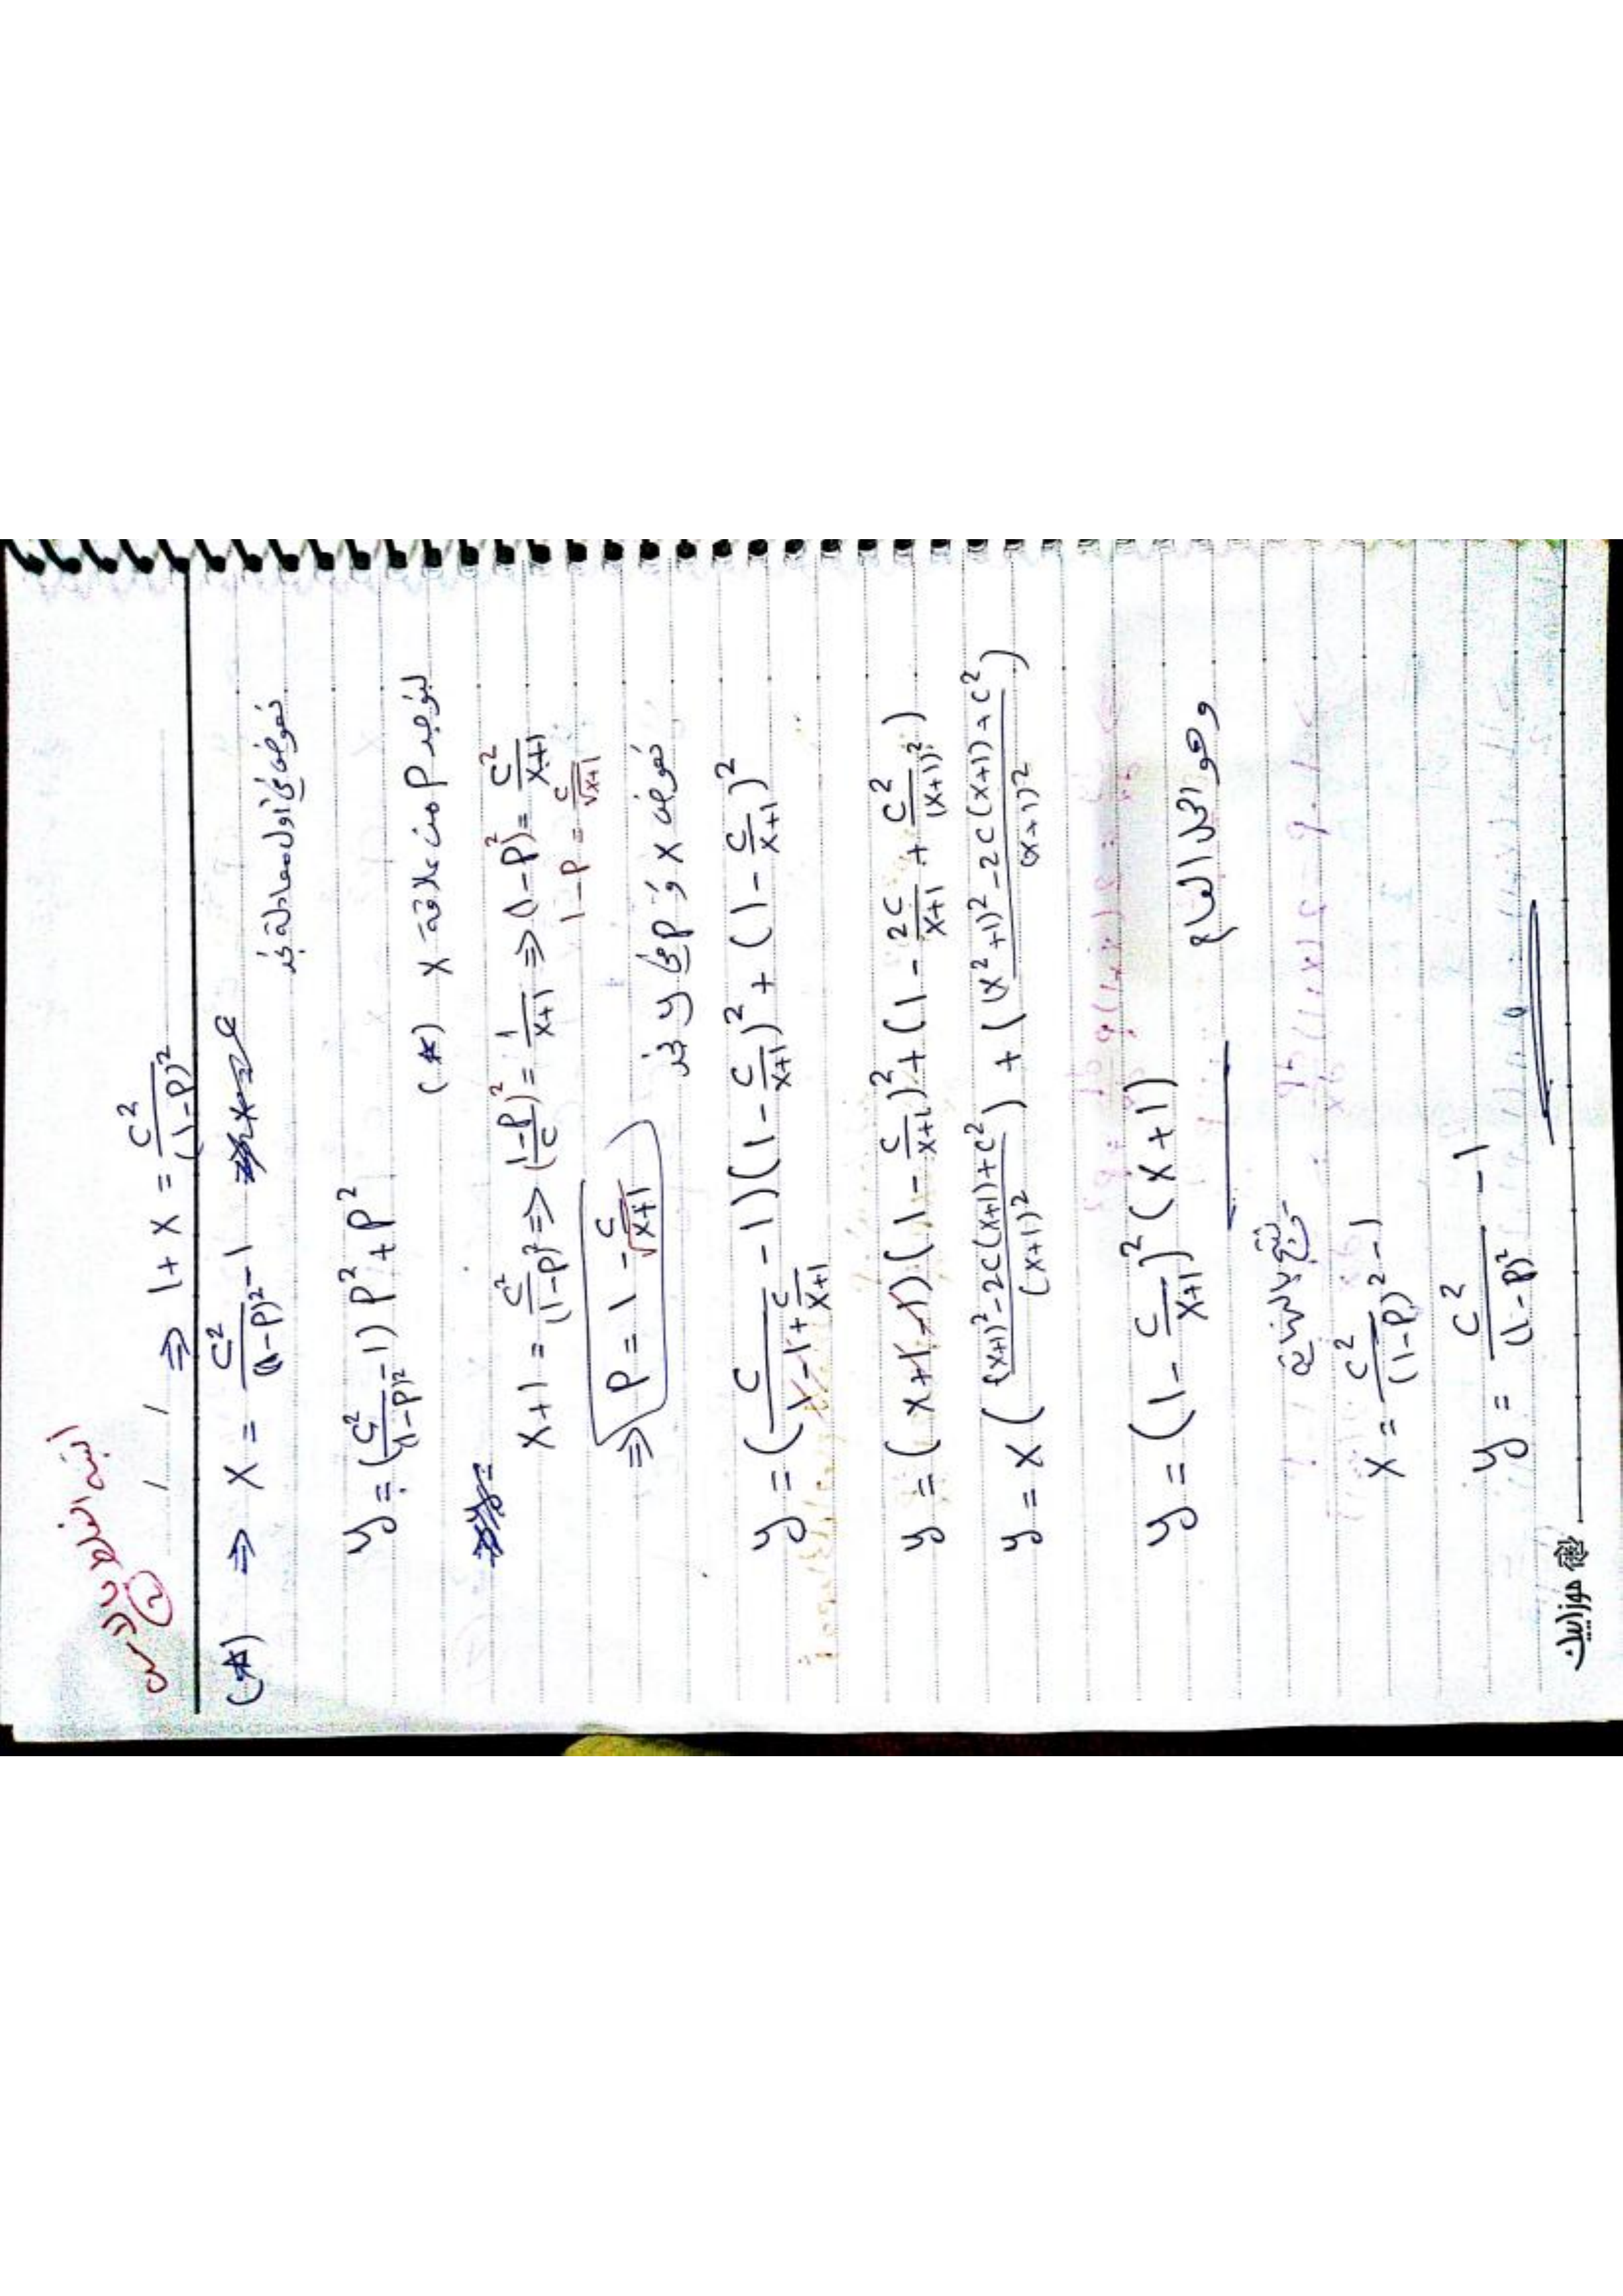 انتبه الغلط بالأس
②
⇒ 1 + x = c² / (1-p)²
(*) ⇒ x = c² / (1-p)² - 1
نعوض في أول معادلة نجد
y = (c² / (1-p)² - 1) p² + p²
لنوجد p من علاقة x (*)
x+1 = c² / (1-p)² ⇒ ((1-p) / c)² = 1 / (x+1) ⇒ (1-p)² = c² / (x+1)
1-p = c / √(x+1)
⇒ p = 1 - c / √(x+1)
نعوض x و p في y نجد
y = (c / (x - 1 + c / (x+1)) - 1)(1 - c / (x+1))² + (1 - c / (x+1))²
y = (x+1-1)(1 - c / (x+1))² + (1 - 2c / (x+1) + c² / (x+1)²)
y = x (((x+1)² - 2c(x+1) + c²) / (x+1)²) + (((x²+1)² - 2c(x+1) + c²) / (x+1)²)
y = (1 - c / (x+1))² (x+1)
وهو الحل العام
x = c² / (1-p)² - 1
y = c² / (1-p)² - 1
موزاييك